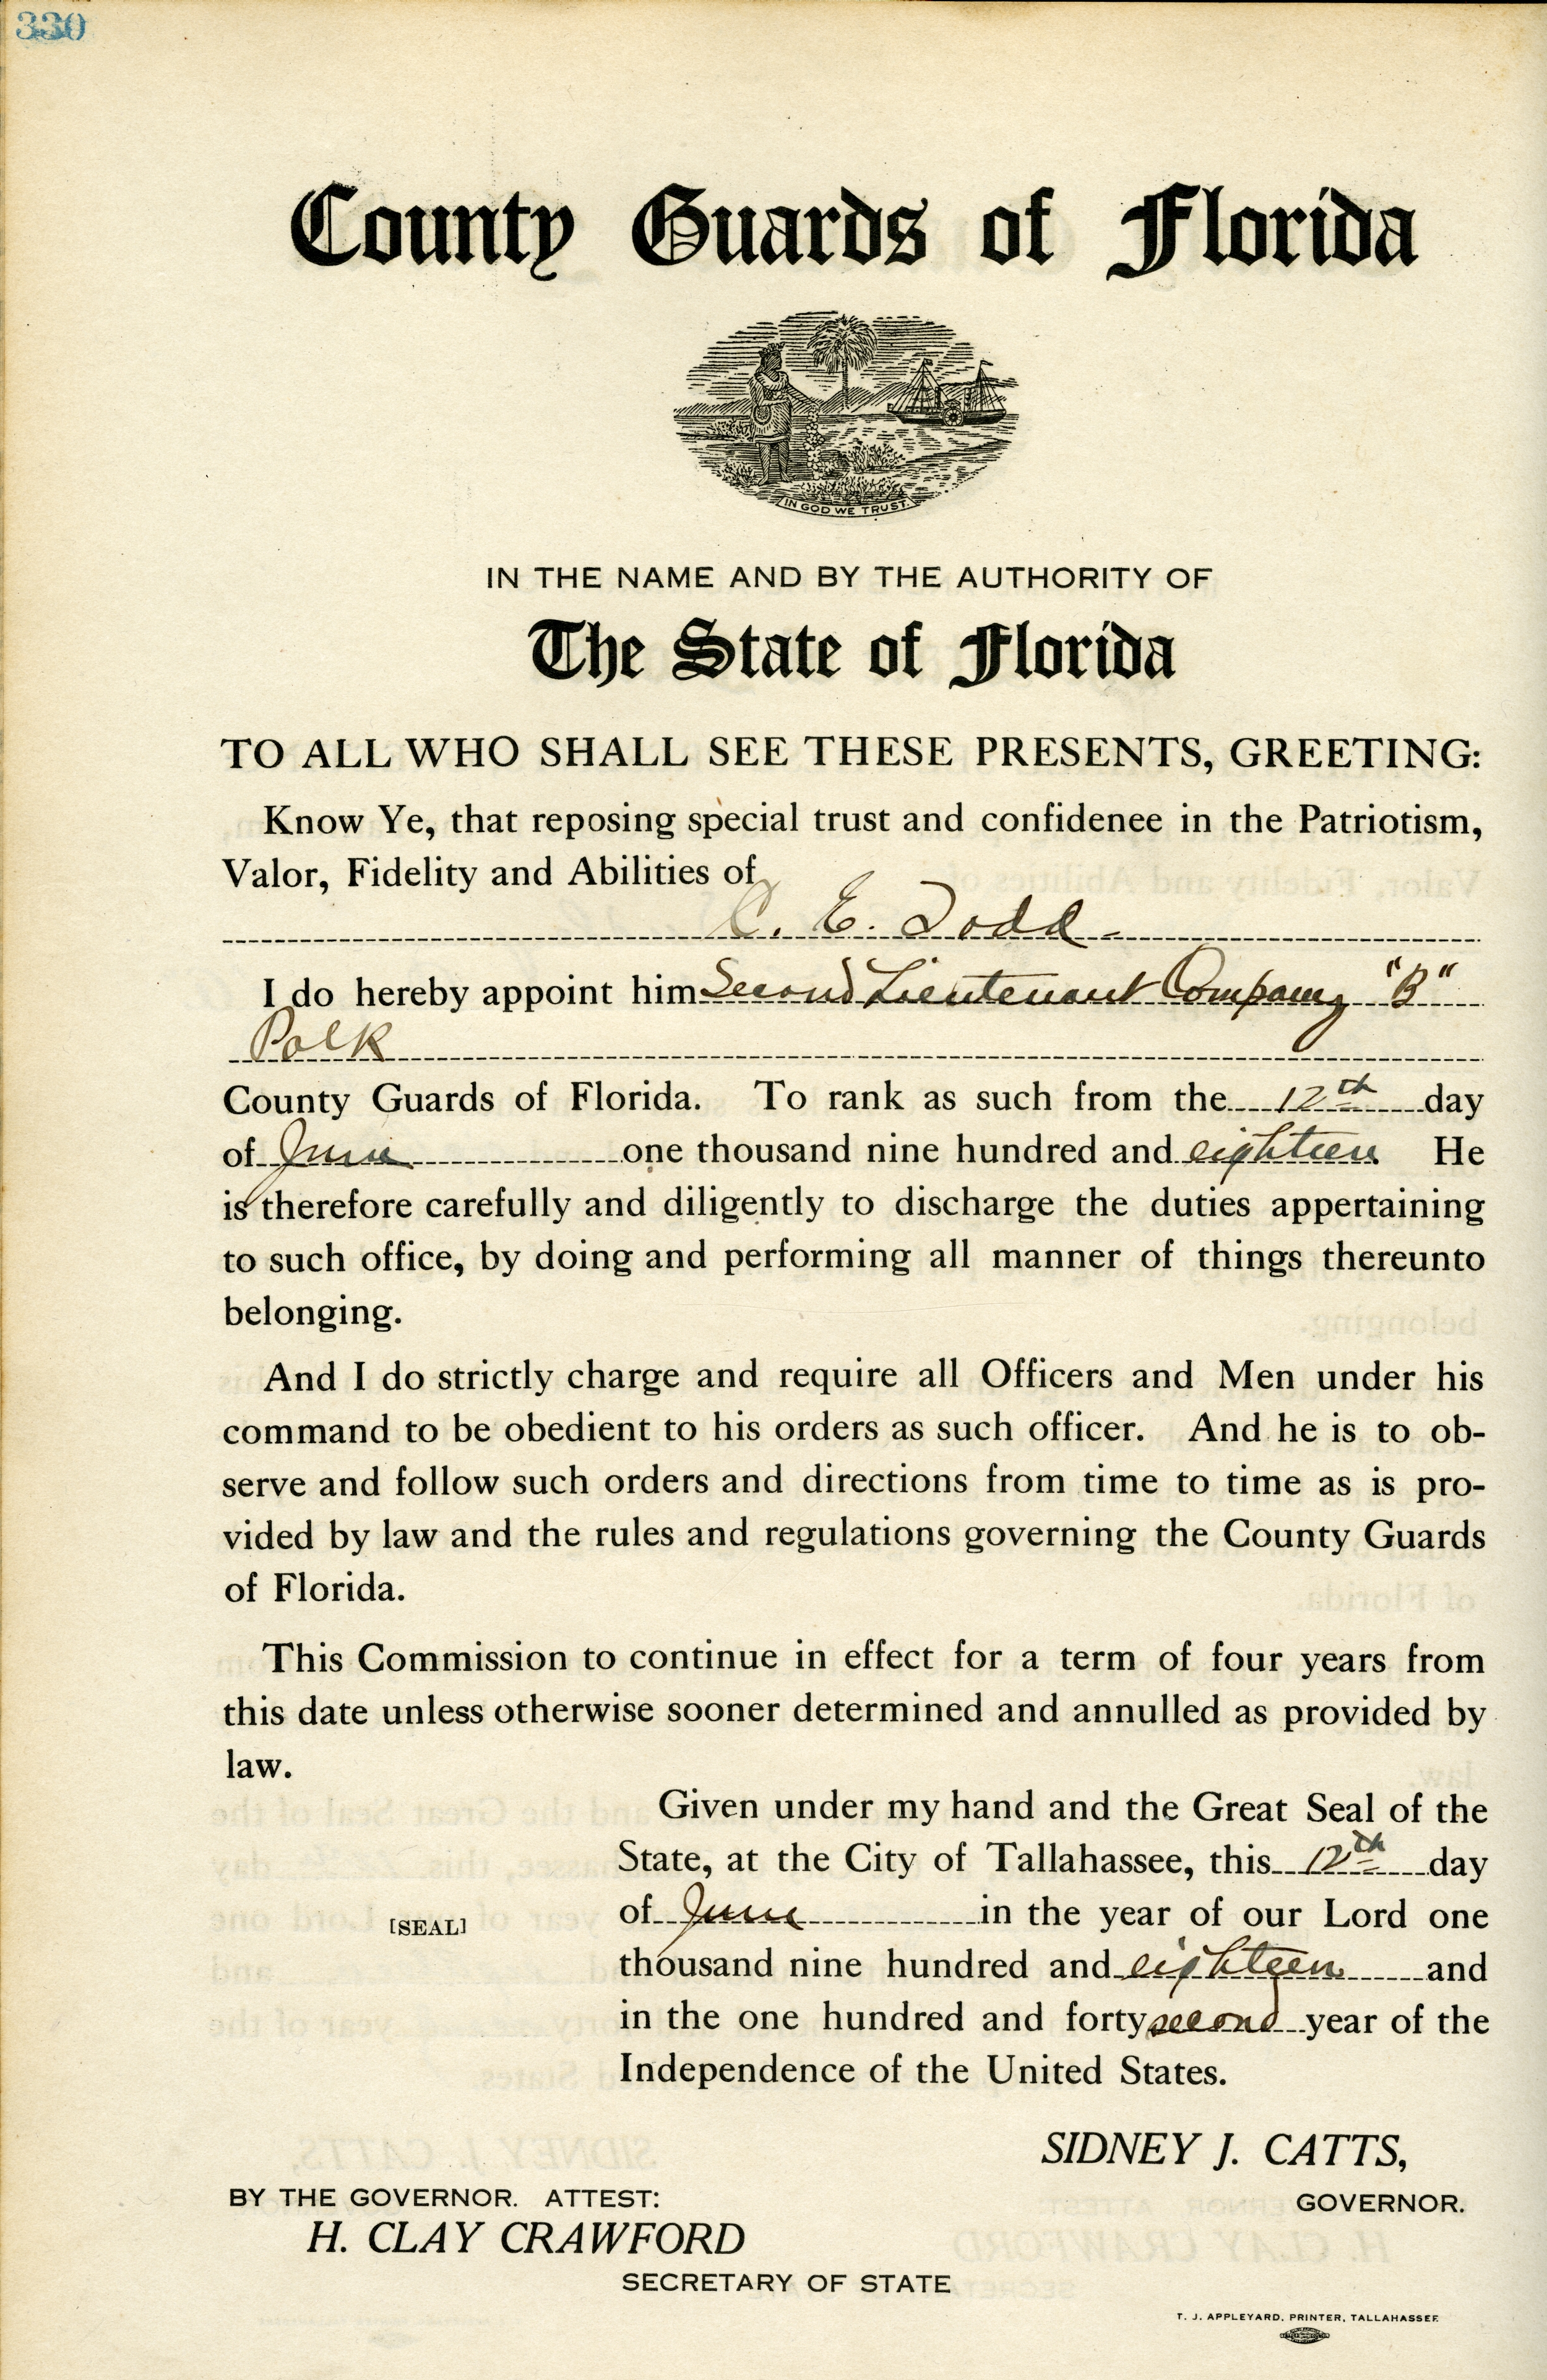 330
County Guards of Florida
IN GOD WE TRUST.
IN THE NAME AND BY THE AUTHORITY OF
The State of Florida
TO ALL WHO SHALL SEE THESE PRESENTS, GREETING:
Know Ye, that reposing special trust and confidenee in the Patriotism,
Valor, Fidelity and Abilities of
C. E. Todd
I do hereby appoint him Second Lieutenant Company "B"
Polk
County Guards of Florida. To rank as such from the 12th day
of June one thousand nine hundred and eighteen He
is therefore carefully and diligently to discharge the duties appertaining
to such office, by doing and performing all manner of things thereunto
belonging.
And I do strictly charge and require all Officers and Men under his
command to be obedient to his orders as such officer. And he is to ob-
serve and follow such orders and directions from time to time as is pro-
vided by law and the rules and regulations governing the County Guards
of Florida.
This Commission to continue in effect for a term of four years from
this date unless otherwise sooner determined and annulled as provided by
law.
Given under my hand and the Great Seal of the
State, at the City of Tallahassee, this 12th day
of June in the year of our Lord one
[SEAL]
thousand nine hundred and eighteen and
in the one hundred and forty second year of the
Independence of the United States.
SIDNEY J. CATTS,
GOVERNOR.
BY THE GOVERNOR. ATTEST:
H. CLAY CRAWFORD
SECRETARY OF STATE
T. J. APPLEYARD, PRINTER, TALLAHASSEE